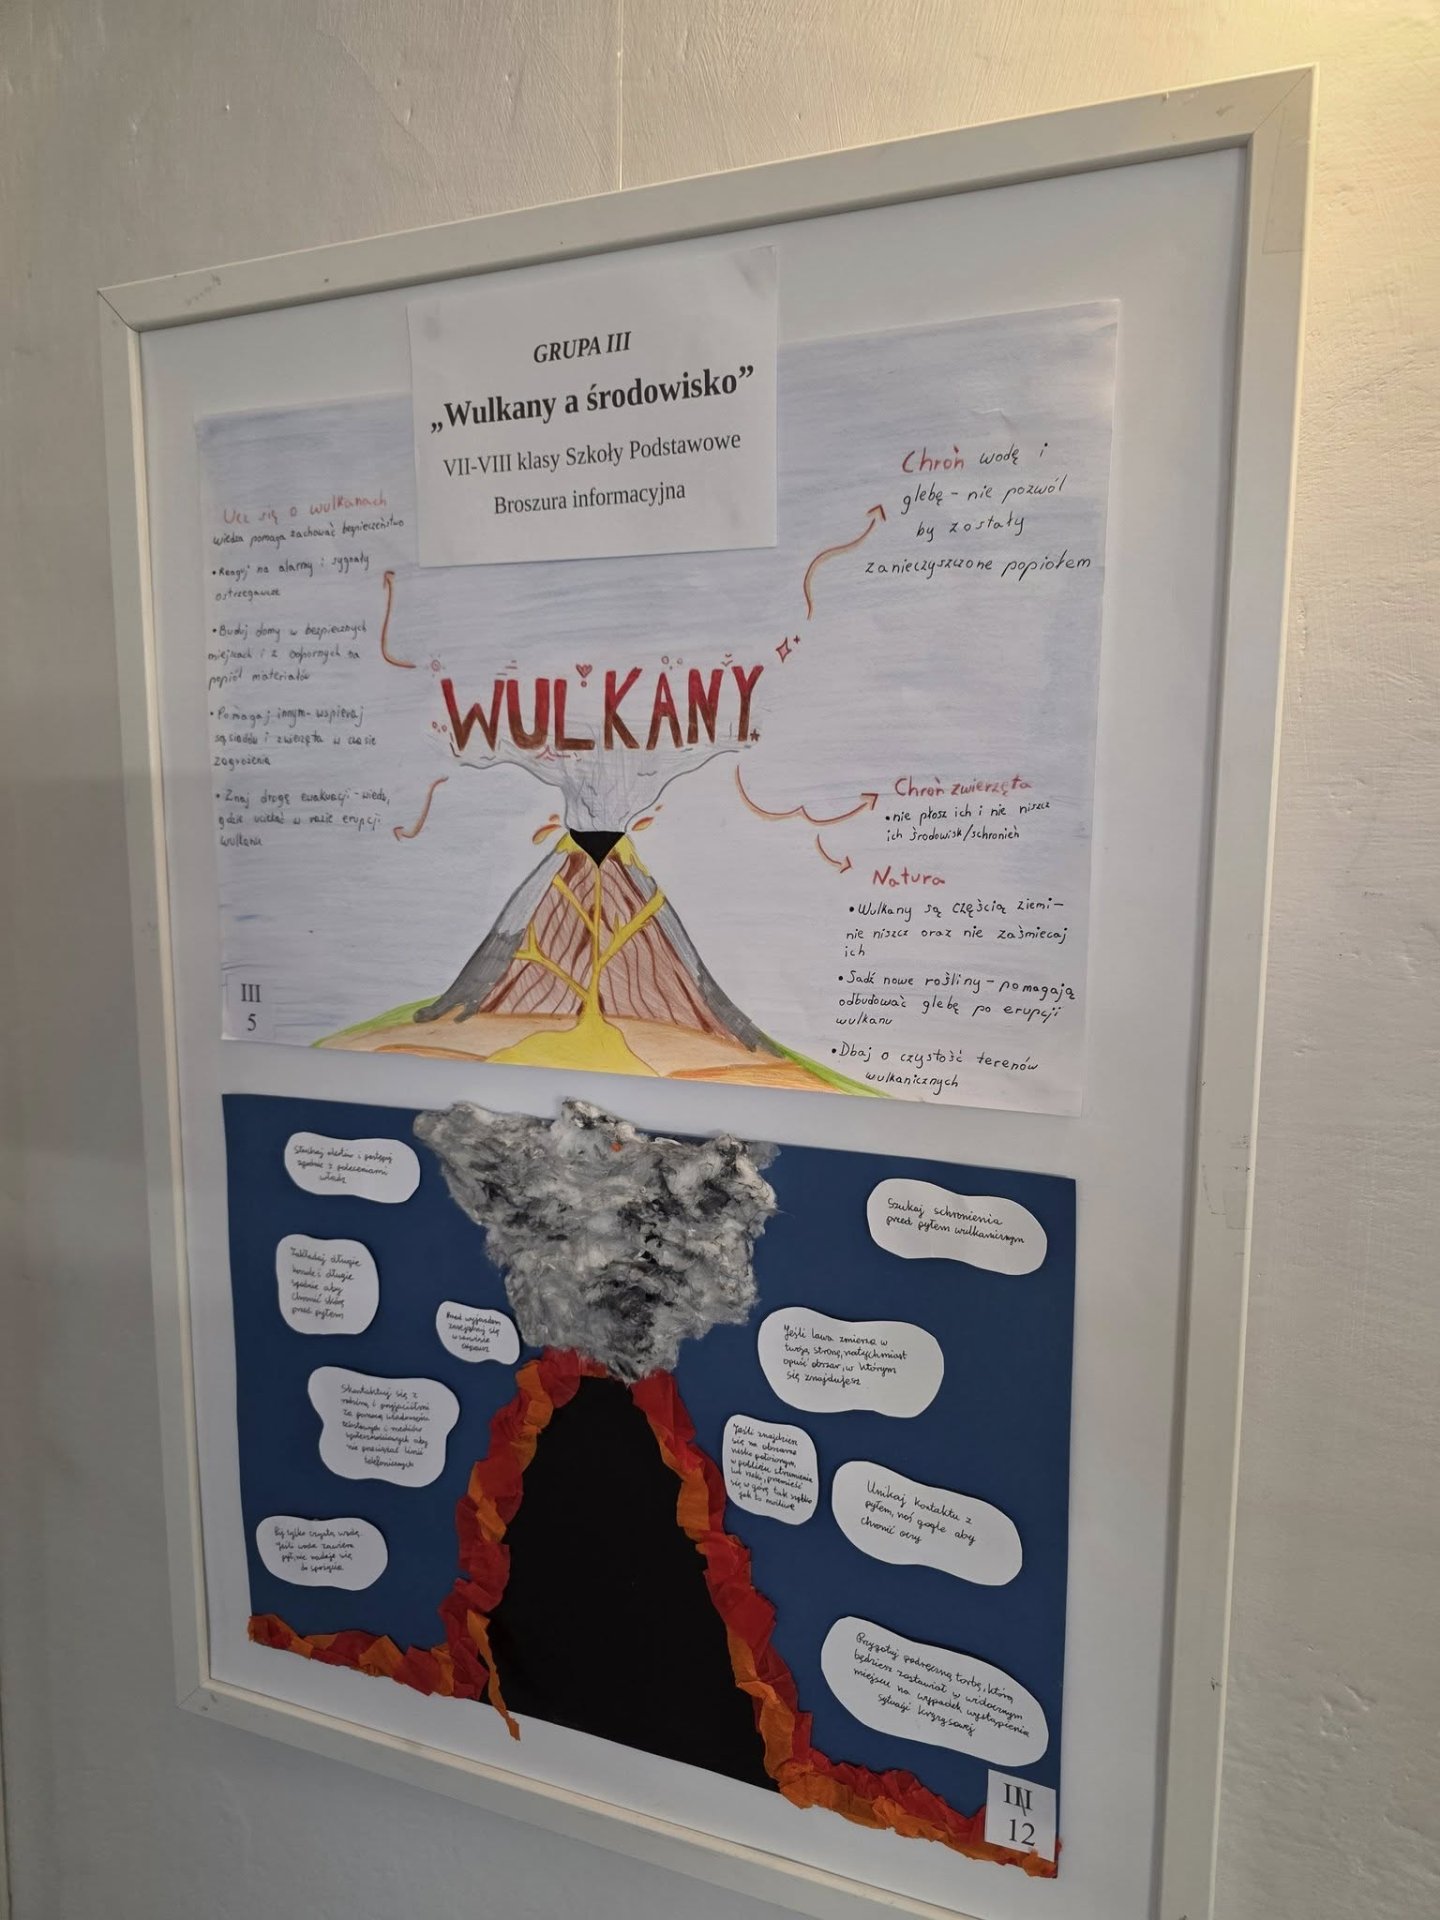 GRUPA III
„Wulkany a środowisko”
VII-VIII klasy Szkoły Podstawowe
Broszura informacyjna
Ucz się o wulkanach
wiedza pomaga zachować bezpieczeństwo
• Reaguj na alarmy i sygnały
ostrzegawcze
• Buduj domy w bezpiecznych
miejscach i z odpornych na
popiół materiałów
• Pomagaj innym - wspieraj
sąsiadów i zwierzęta w czasie
zagrożenia
• Znaj drogę ewakuacji - wiedz,
gdzie uciekać w razie erupcji
wulkanu
WULKANY
Chroń wodę i
glebę - nie pozwól
by zostały
zanieczyszczone popiołem
Chroń zwierzęta
• nie płosz ich i nie niszcz
ich środowisk/schronień
Natura
• Wulkany są częścią ziemi -
nie niszcz oraz nie zaśmiecaj
ich
• Sadź nowe rośliny - pomagają
odbudować glebę po erupcji
wulkanu
• Dbaj o czystość terenów
wulkanicznych
III
5
Słuchaj alertów i postępuj
zgodnie z poleceniami
władz
Zakładaj długie
koszule i długie
spodnie aby
chronić skórę
przed pyłem
Przed wyjazdem
zaopatrz się
w
Skontaktuj się z
rodziną i przyjaciółmi
za pomocą wiadomości
tekstowych i mediów
społecznościowych aby
nie przeciążać linii
telefonicznych
Pij tylko czystą wodę.
Jeśli woda zawiera
pył, nie nadaje się
do spożycia
Szukaj schronienia
przed pyłem wulkanicznym
Jeśli lawa zmierza w
twoją stronę, natychmiast
opuść obszar, w którym
się znajdujesz
Jeśli znajdziesz
się na obszarze
nisko położonym,
w pobliżu strumienia
lub rzeki, przemieść
się w górę tak szybko
jak to możliwe
Unikaj kontaktu z
pyłem, noś gogle aby
chronić oczy
Przygotuj podręczną torbę, którą
będziesz zostawiał w widocznym
miejscu na wypadek wystąpienia
sytuacji kryzysowej
12